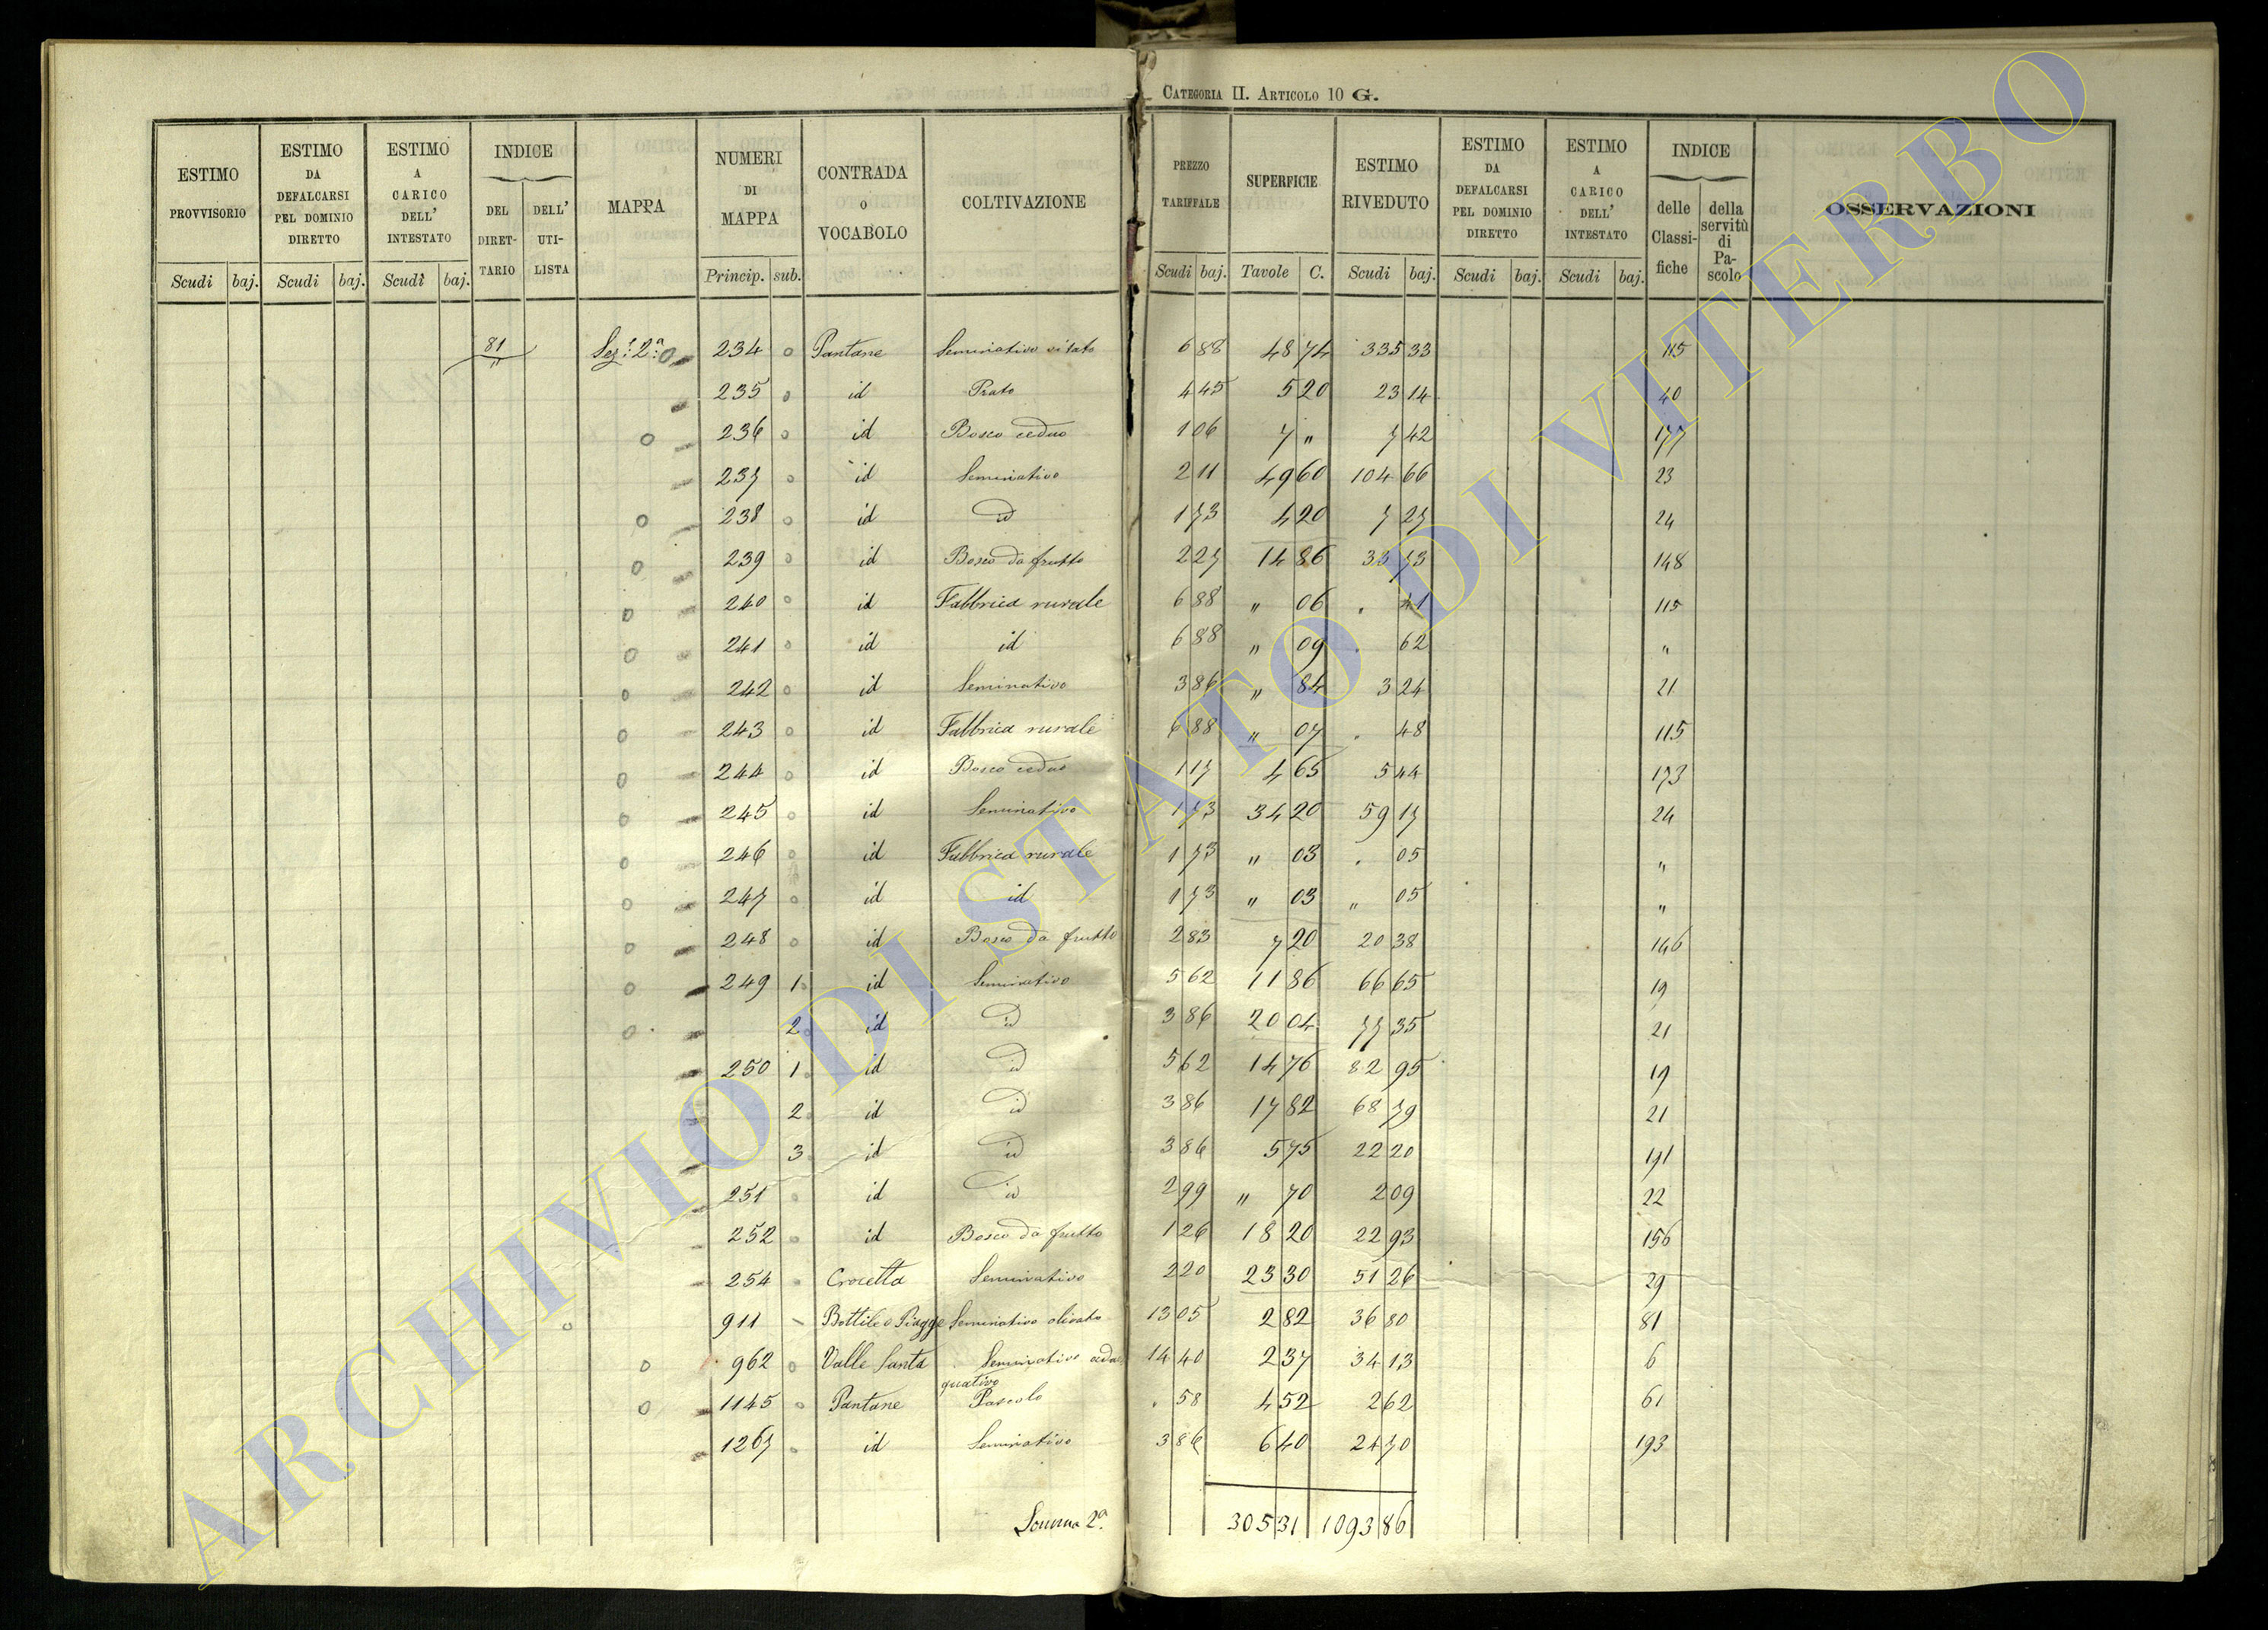 CATEGORIA II. ARTICOLO 10 G.
ESTIMO PROVVISORIO Scudi baj.
ESTIMO DA DEFALCARSI PEL DOMINIO DIRETTO Scudi baj.
ESTIMO A CARICO DELL' INTESTATO Scudi baj.
INDICE DEL DIRETTARIO DELL' UTILISTA
MAPPA
NUMERI DI MAPPA Princip. sub.
CONTRADA O VOCABOLO
COLTIVAZIONE
PREZZO TARIFFALE Scudi baj.
SUPERFICIE Tavole C.
ESTIMO RIVEDUTO Scudi baj.
ESTIMO DA DEFALCARSI PEL DOMINIO DIRETTO Scudi baj.
ESTIMO A CARICO DELL' INTESTATO Scudi baj.
INDICE delle Classifiche della servitù di Pascolo
OSSERVAZIONI
81 Sez: 2ª 234 0 Pantane Seminativo vitato 6 88 48 74 335 33 115
235 0 id Prato 4 45 5 20 23 14 40
236 0 id Bosco ceduo 1 06 7 " 7 42 177
237 0 id Seminativo 2 11 49 60 104 66 23
238 0 id id 1 73 4 20 7 27 24
239 0 id Bosco da frutto 2 27 14 86 33 73 148
240 0 id Fabbrica rurale 6 88 " 06 . 41 115
241 0 id id 6 88 " 09 . 62 "
242 0 id Seminativo 3 86 " 84 3 24 21
243 0 id Fabbrica rurale 6 88 " 07 . 48 115
244 0 id Bosco ceduo 1 17 4 65 5 44 173
245 0 id Seminativo 1 73 34 20 59 17 24
246 0 id Fabbrica rurale 1 73 " 03 . 05 "
247 0 id id 1 73 " 03 " 05 "
248 0 id Bosco da frutto 2 83 7 20 20 38 146
249 1 id Seminativo 5 62 11 86 66 65 19
2 id id 3 86 20 04 77 35 21
250 1 id id 5 62 14 76 82 95 19
2 id id 3 86 17 82 68 79 21
3 id id 3 86 5 75 22 20 191
251 0 id id 2 99 " 70 2 09 22
252 0 id Bosco da frutto 1 26 18 20 22 93 156
254 0 Crocetta Seminativo 2 20 23 30 51 26 29
911 Bottile o Piagge Seminativo olivato 13 05 2 82 36 80 81
962 0 Valle Santa Seminativo adac
quativo 14 40 2 37 34 13 6
1145 0 Pantane Pascolo . 58 4 52 2 62 61
1267 0 id Seminativo 3 86 6 40 24 70 193
Somma 2ª 305 31 1093 86
ARCHIVIO DI STATO DI VITERBO